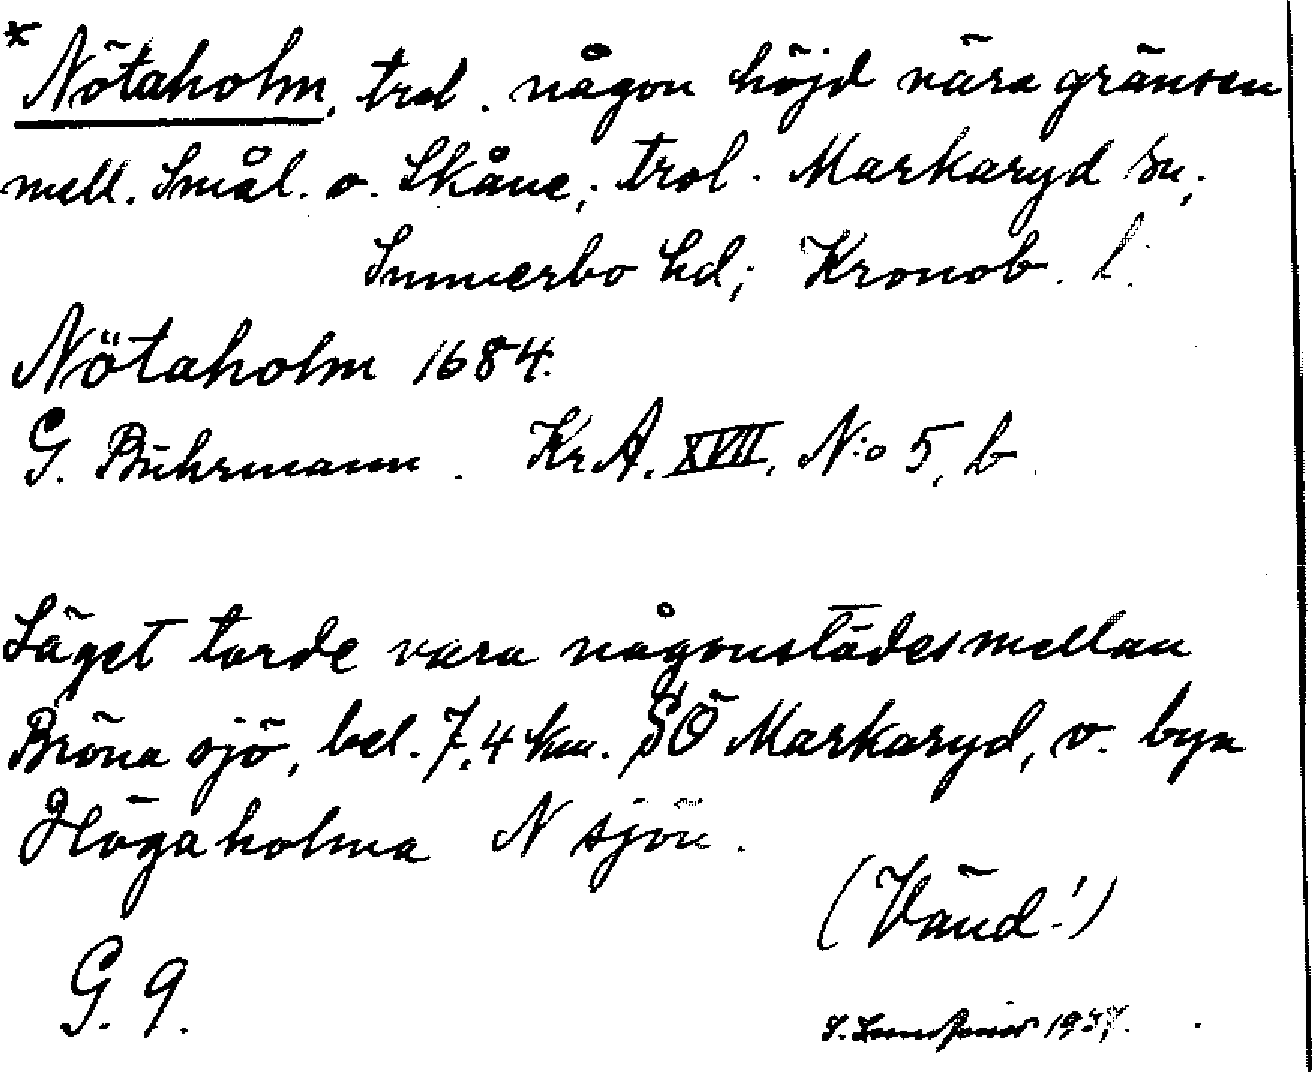 * Nötaholm, trol. någon höjd nära gränsen
mell. Smål. o. Skåne; trol. Markaryd sn;
Sunnerbo hd; Kronob. l.
Nötaholm 1684.
G. Buhrmann. Kr.A. XVII, N:o 5, b.
Läget torde vara någonstädes mellan
Bröna sjö, bel. 7,4 km. SÖ Markaryd, o. byn
Högaholma N sjön.
(Vänd!)
G. 9.
1937.